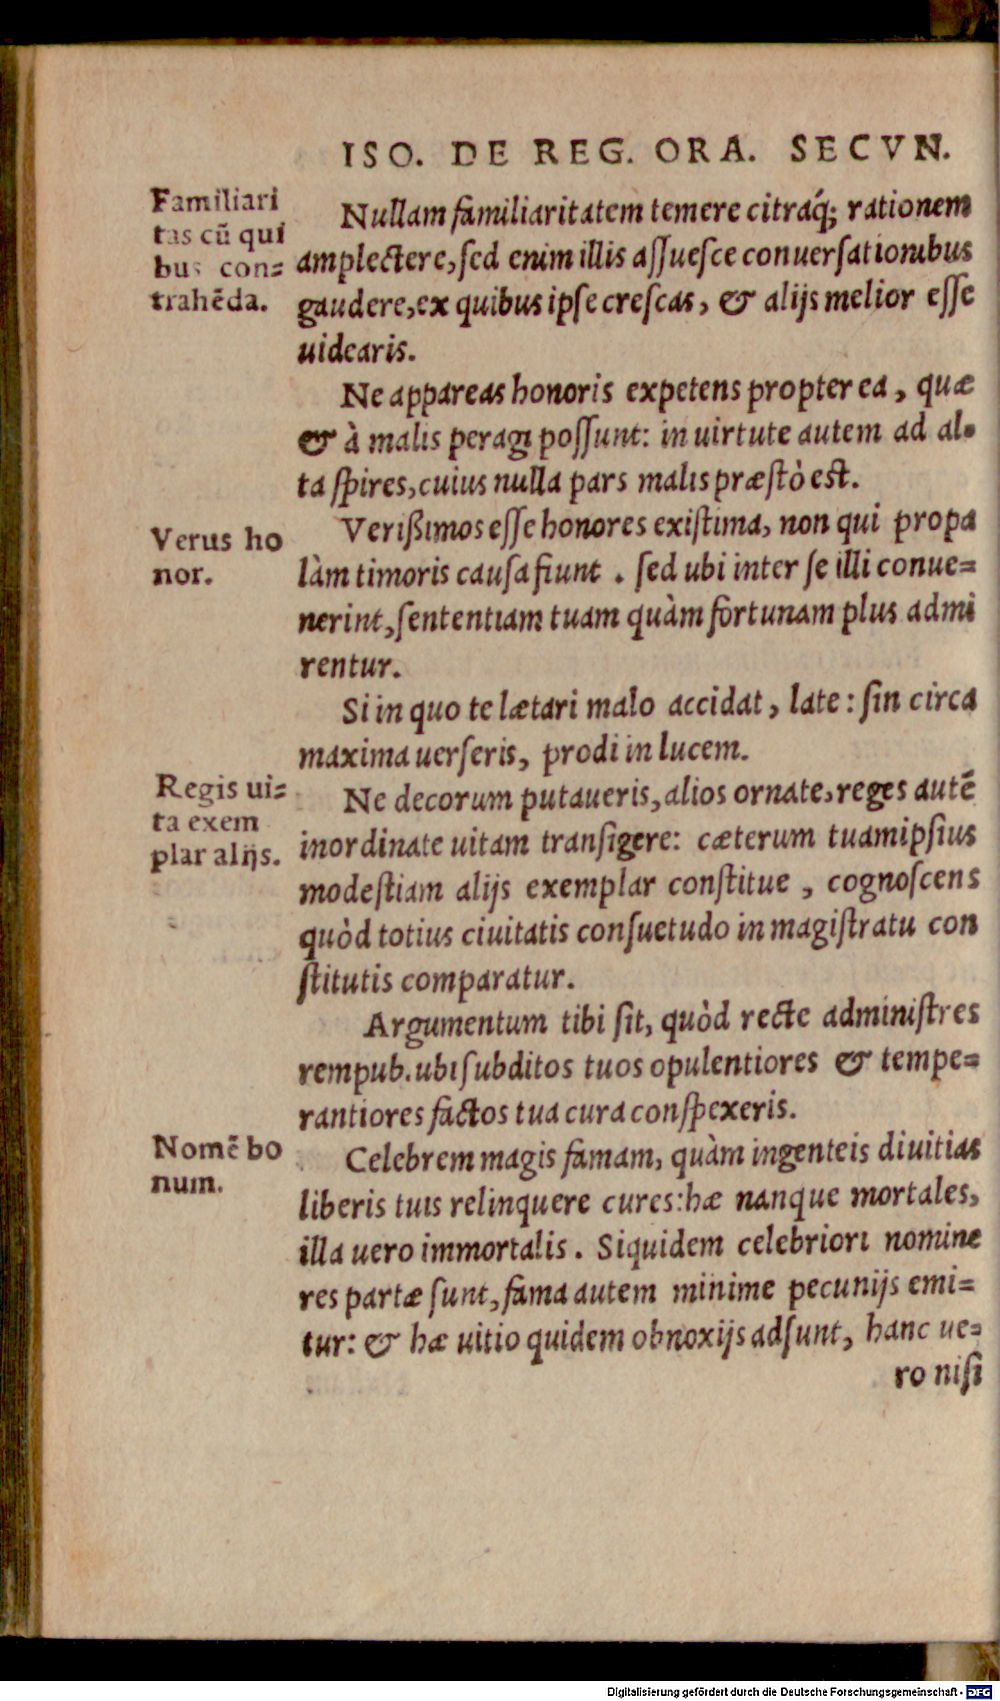 ISO. DE REG. ORA. SECVN.
Familiari
tas cũ qui
bus con=
trahẽda.
Nullam familiaritatem temere citraq́; rationem
amplectere, sed enim illis assuesce conuersationibus
gaudere, ex quibus ipse crescas, & alijs melior esse
uidearis.
Ne appareas honoris expetens propter ea, quæ
& à malis peragi possunt: in uirtute autem ad al-
ta spires, cuius nulla pars malis præstò est.
Verus ho
nor.
Verißimos esse honores existima, non qui propa
làm timoris causa fiunt. sed ubi inter se illi conue=
nerint, sententiam tuam quàm fortunam plus admi
rentur.
Si in quo te lætari malo accidat, late: sin circa
maxima uerseris, prodi in lucem.
Regis ui=
ta exem
plar alijs.
Ne decorum putaueris, alios ornate, reges autẽ
inordinate uitam transigere: cæterum tuamipsius
modestiam alijs exemplar constitue, cognoscens
quòd totius ciuitatis consuetudo in magistratu con
stitutis comparatur.
Argumentum tibi sit, quòd recte administres
rempub. ubi subditos tuos opulentiores & tempe=
rantiores factos tua cura conspexeris.
Nomẽ bo
num.
Celebrem magis famam, quàm ingenteis diuitias
liberis tuis relinquere cures: hæ nanque mortales,
illa uero immortalis. Siquidem celebriori nomine
res partæ sunt, fama autem minime pecunijs emi=
tur: & hæ uitio quidem obnoxijs adsunt, hanc ue=
ro nisi
Digitalisierung gefördert durch die Deutsche Forschungsgemeinschaft - DFG